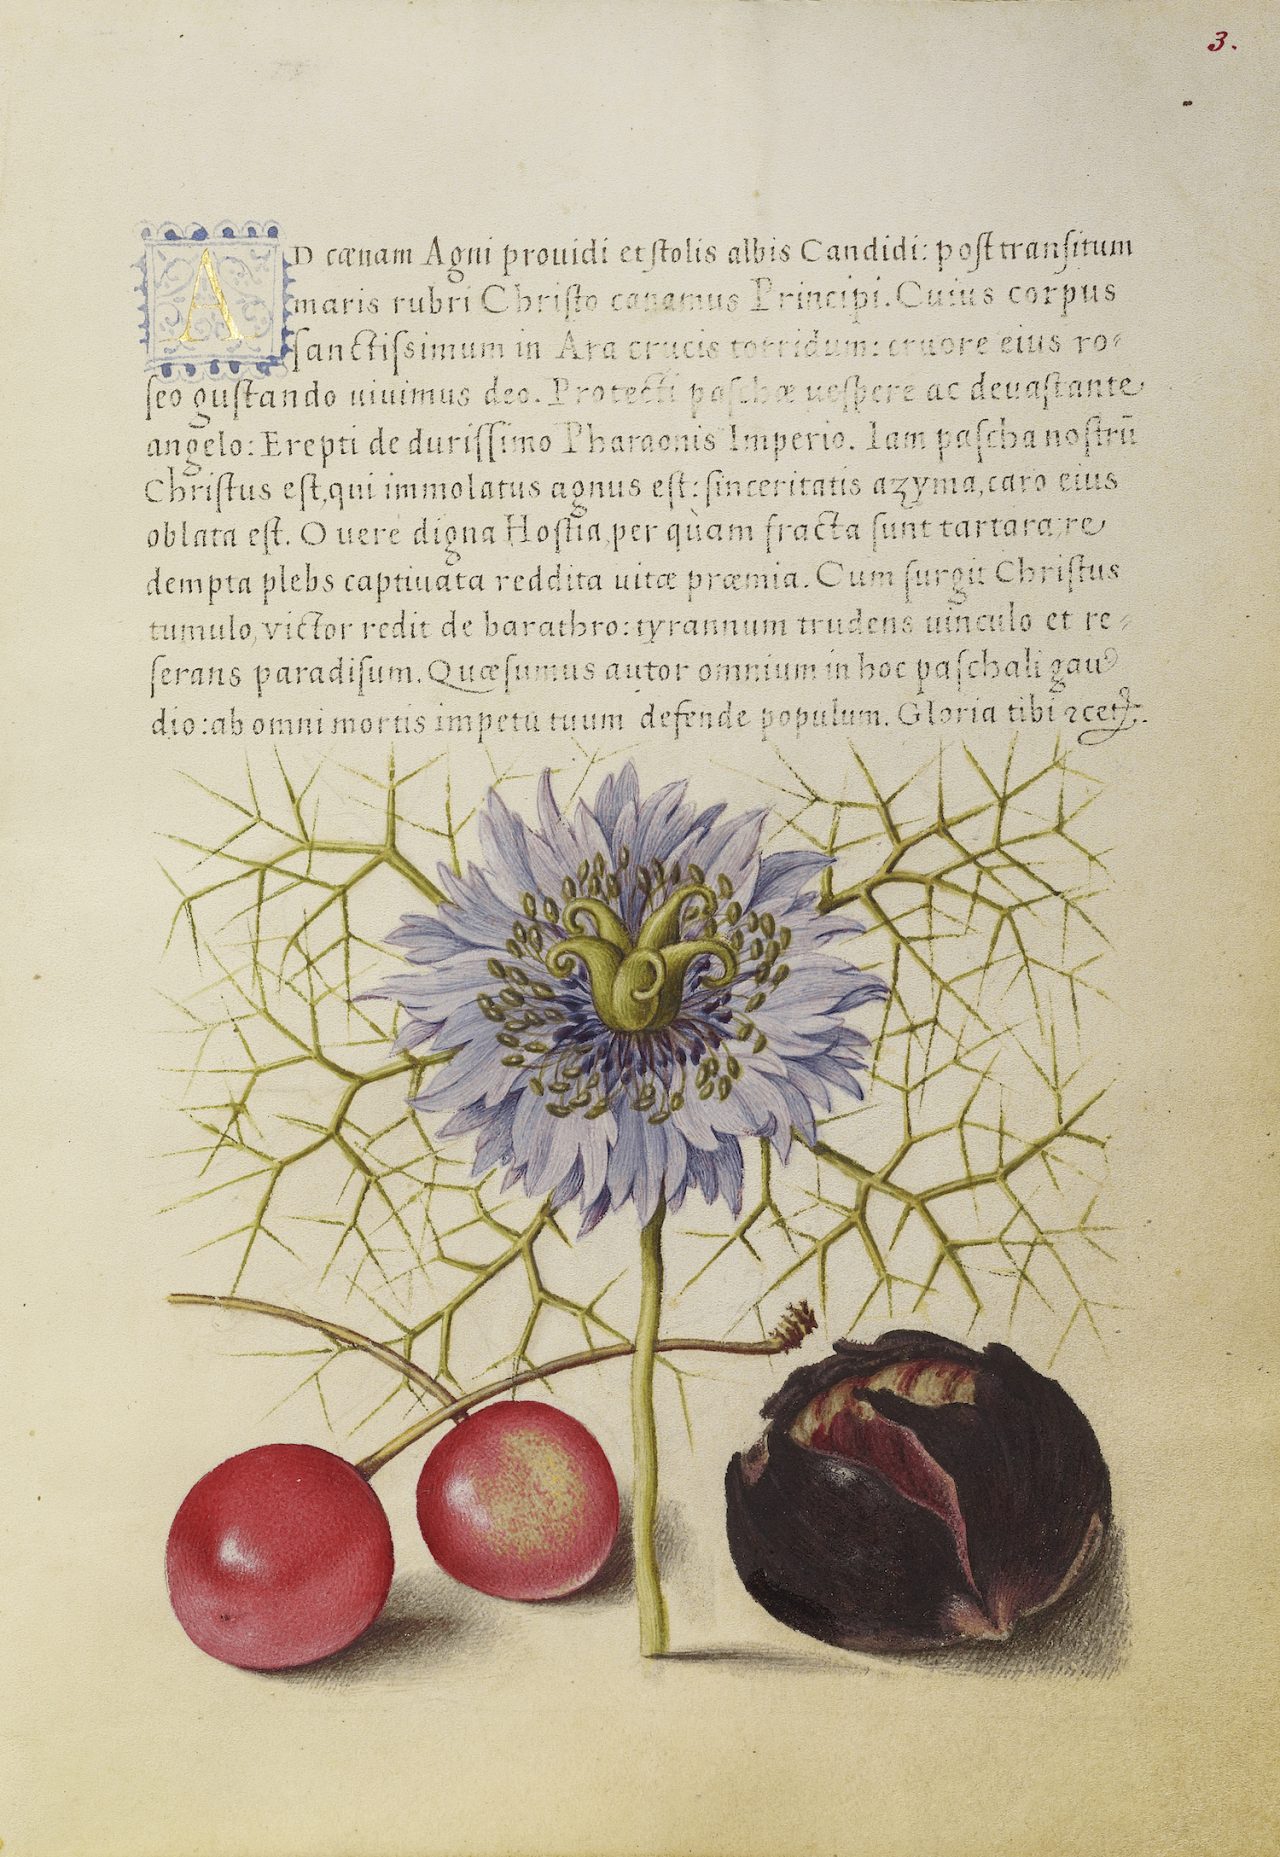 3.
AD cænam Agni prouidi et ſtolis albis Candidi: poſt tranſitum
maris rubri Chriſto canamus Principi. Cuius corpus
ſanctiſsimum in Ara crucis torridum: cruore eius ro⸗
ſeo guſtando uiuimus deo. Protecti paſchæ ueſpere ac deuaſtante
angelo: Erepti de duriſſimo Pharaonis Imperio. Iam paſcha noſtrū
Chriſtus eſt, qui immolatus agnus eſt: ſinceritatis azyma, caro eius
oblata eſt. O uere digna Hoſtia, per quàm fracta ſunt tartara: re
dempta plebs captiuata reddita uitæ præmia. Cum ſurgit Chriſtus
tumulo, victor redit de barathro: tyrannum trudens uinculo et re⸗
ſerans paradiſum. Quæſumus autor omnium in hoc paſchali gau
dio: ab omni mortis impetu tuum defende populum. Gloria tibi ⁊cet.